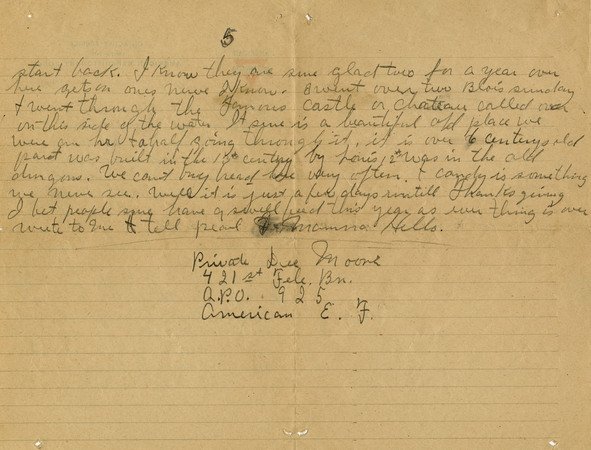 5
start back. I know they are sure glad two for a year over
here gets on ones nerve I know. I went over two Blois sunday
& went through the Famous Castle or Chateau called over
on this side of the water It sure is a beautiful old place we
were an hr & a half going through it, it is over 6 centurys old
part was built in the 13th century by Louis, was in the old
dungons. We cant buy bread here very often. & candy is something
we never see. Well it is just a few days untill Thanksgiving
I bet people sure have a swell feed this year as ever thing is over
write to me & tell pearl & mamma Hello.
Private Dee Moore
421st Tele. Bn.
A.P.O. 925
American E. F.